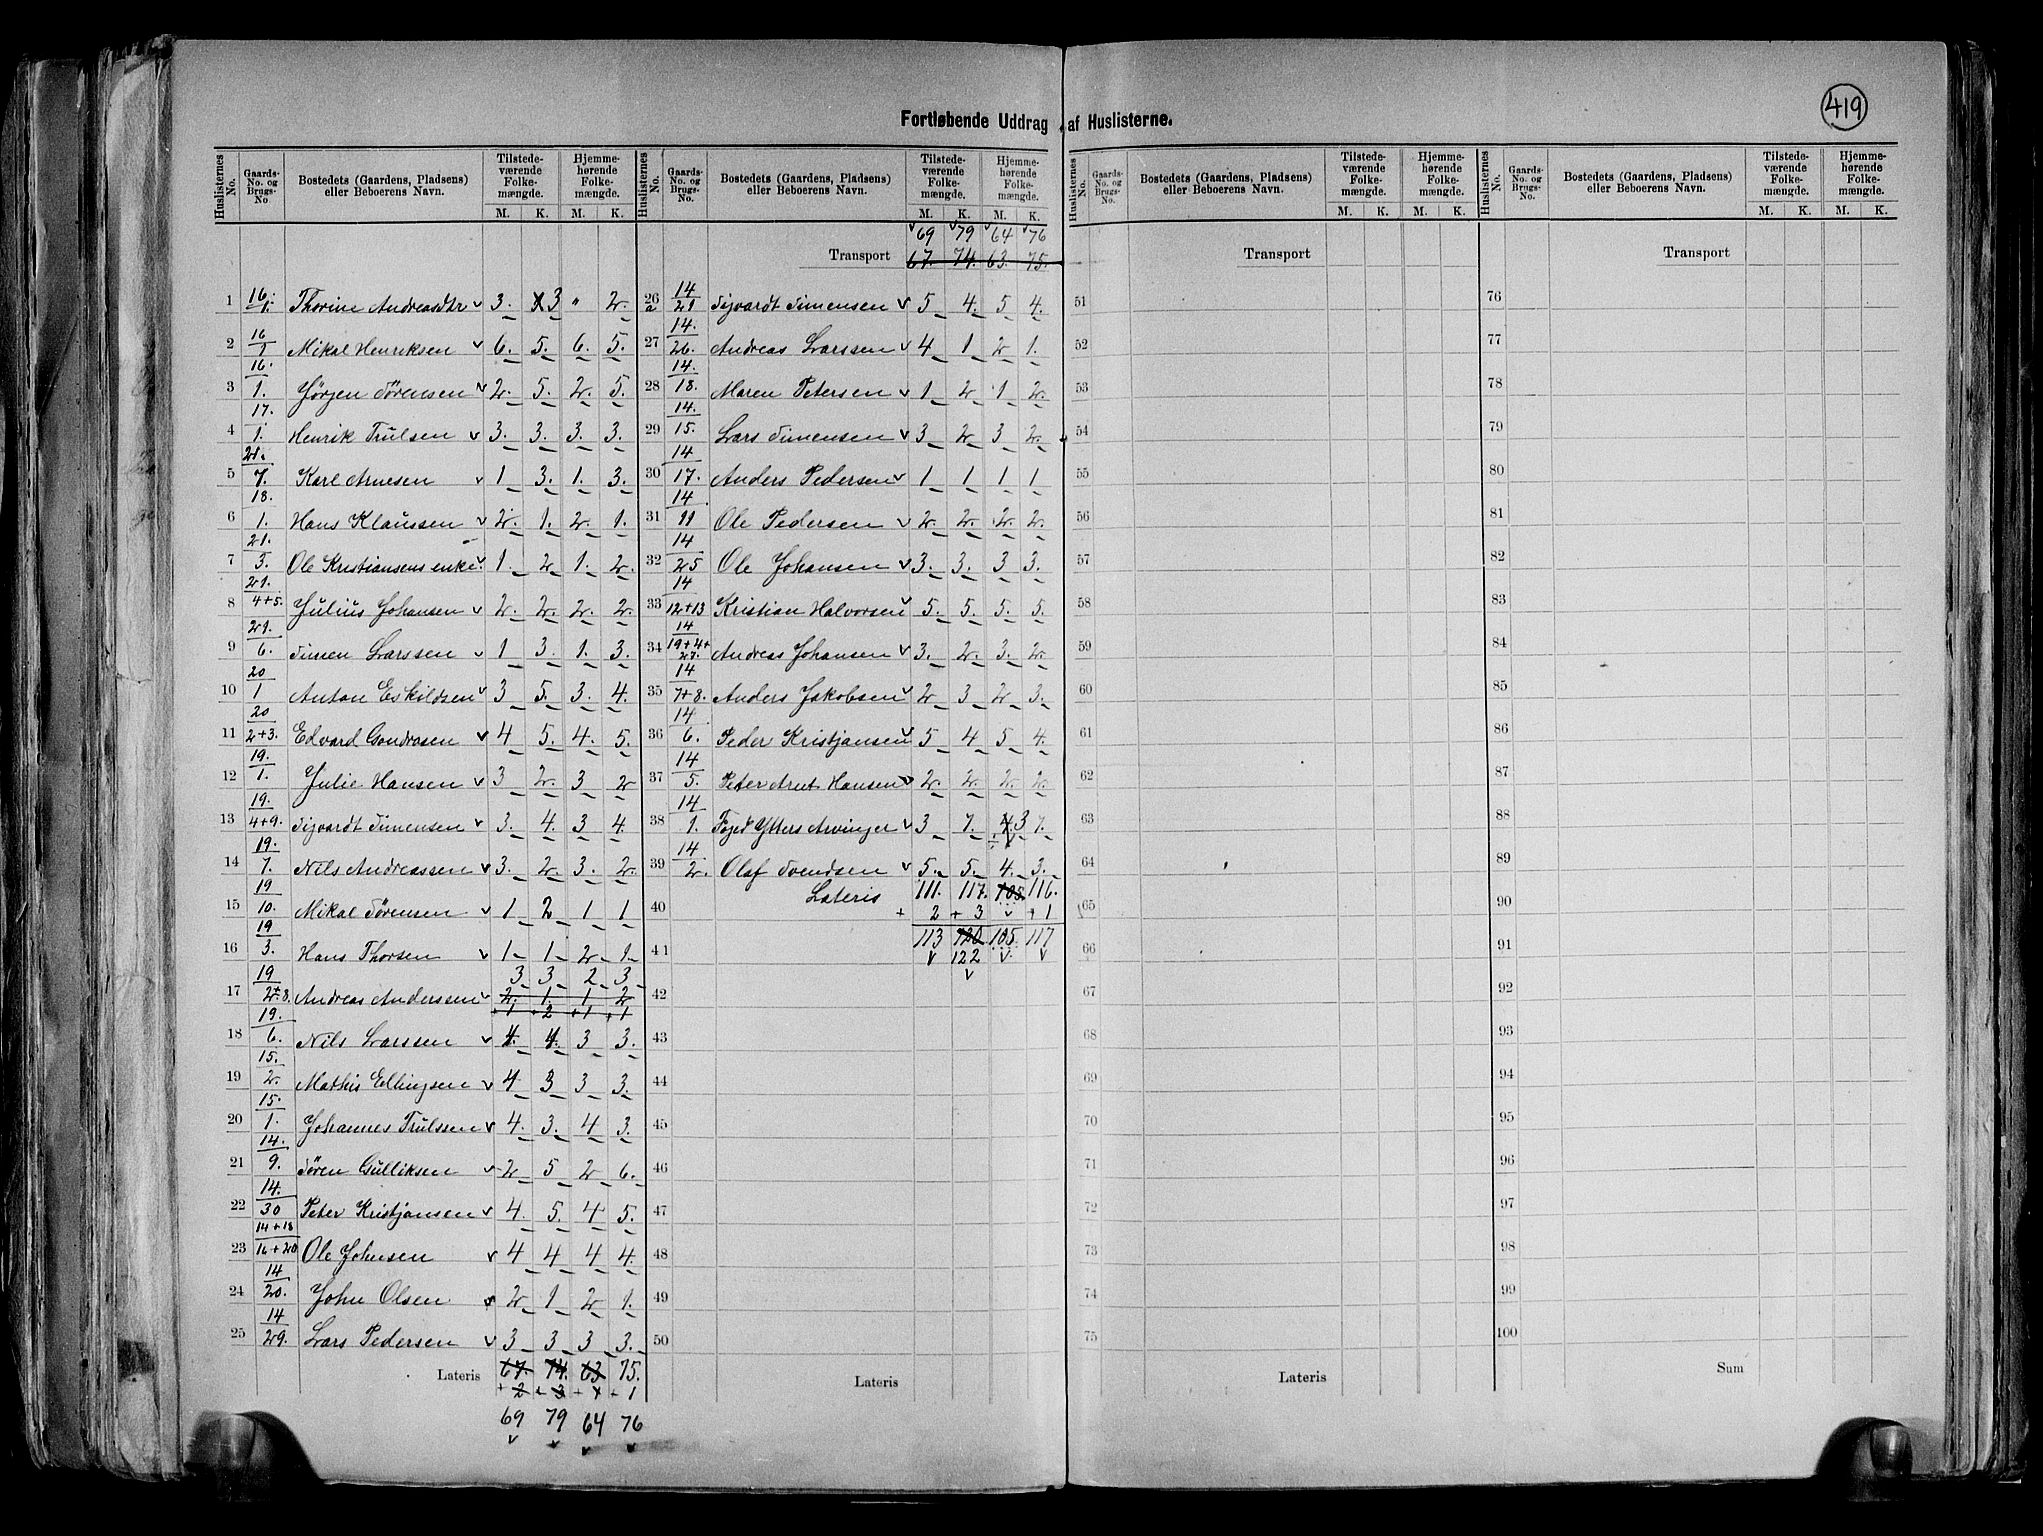 419
Fortløbende Uddrag af Huslisterne.
Huslisternes No. | Gaards-No. og Brugs-No | Bostedets (Gaardens, Pladsens) eller Beboerens Navn. | Tilstedeværende Folkemængde. M. K. | Hjemmehørende Folkemængde. M. K.
1 16./1. Thorine Andreasdtr v 3. 3 " 2.
2 16/1 Mikal Henriksen v 6. 5. 6. 5.
3 16./1. Jørgen Sörensen v 2. 5. 2. 5.
4 17./1. Henrik Trulsen v 3. 3. 3. 3.
5 21./7. Karl Arnesen v 1 3. 1. 3.
6 18./1. Hans Klaussen v 2. 1. 2. 1.
7 21./3. Ole Kristiansens enke v 1. 2 1. 2.
8 21./4+5. Julius Johansen v 2. 2. 2. 2.
9 21./6. Simen Larssen v 1 3. 1. 3.
10 20/1 Anton Eskildsen v 3 5. 3. 4.
11 20/2+3. Edvard Gundrosen v 4 5. 4. 5.
12 19./1. Julie Hansen v 3 2. 3 2
13 19./4+9. Sigvardt Simensen v 3. 4. 3 4.
14 19./7. Nils Andreassen v 3. 2. 3. 2.
15 19/10. Mikal Sörensen v 1 2 1 1
16 19/3. Hans Thorsen v 1 1 2 1
3 3. 2 3
17 19/2+8. Andreas Anderssen v 2. 1. 1 2
+1 +2 +1 +1
18 19./6. Nils Larssen v 4. 4. 3 3.
19 15./2. Mathis Ellingsen v 4 3 3 3.
20 15./1. Johannes Trulssen v 4. 3. 4 3.
21 14./9. Sören Gulliksen v 2 5 2 6.
22 14./30 Peter Kristjansen v 4. 5. 4 5.
23 14+18/16+20 Ole Johnsen v 4 4 4 4.
24 14/20. John Olsen v 2 1 2 1.
25 14/29. Lars Pedersen v 3 3 3 3.
Lateris 67. 74. 63 75.
+2 +3 +1 +1
69 79 64 76
v v v v
Huslisternes No. | Gaards-No. og Brugs-No. | Bostedets (Gaardens, Pladsens) eller Beboerens Navn. | Tilstedeværende Folkemængde. M. K. | Hjemmehørende Folkemængde. M. K.
v69 v79 v64 v76
Transport 67. 74. 63. 75.
26a 14/21 Sigvardt Simensen v 5 4. 5 4.
27 14./26. Andreas Larssen v 4 1 2 1.
28 14./18. Maren Petersen v 1 2 1 2.
29 14./15. Lars Simensen v 3 2 3 2.
30 14/17. Anders Pedersen v 1 1 1 1
31 14/11 Ole Pedersen v 2. 2. 2. 2.
32 14/25 Ole Johansen v 3. 3. 3 3.
33 14/12+13 Kristian Halvorsen 5. 5. 5. 5.
34 14/19+4+27. Andreas Johansen v 3. 2. 3. 2.
35 14/7+8. Anders Jakobsen v 2 3 2 3.
36 14/6. Peder Kristjansen v 5 4 5 4.
37 14/5. Peter Arnt Hansen v 2. 2. 2. 2.
38 14/1. v 3 7. 4 3 7.
39 14/2. Olaf Svendsen v 5. 5. 4. 3.
Lateris 111. 117. 105. 116.
40 + 2 + 3 v + 1
41 113 120 105. 117
v 122 v v
v
42
43
44
45
46
47
48
49
50
Lateris
Huslisternes No. | Gaards-No. og Brugs-No. | Bostedets (Gaardens, Pladsens) eller Beboerens Navn. | Tilstedeværende Folkemængde. M. K. | Hjemmehørende Folkemængde. M. K.
Transport
51
52
53
54
55
56
57
58
59
60
61
62
63
64
65
66
67
68
69
70
71
72
73
74
75
Lateris
Huslisternes No. | Gaards-No. og Brugs-No. | Bostedets (Gaardens, Pladsens) eller Beboerens Navn. | Tilstedeværende Folkemængde. M. K. | Hjemmehørende Folkemængde. M. K.
Transport
76
77
78
79
80
81
82
83
84
85
86
87
88
89
90
91
92
93
94
95
96
97
98
99
100
Sum